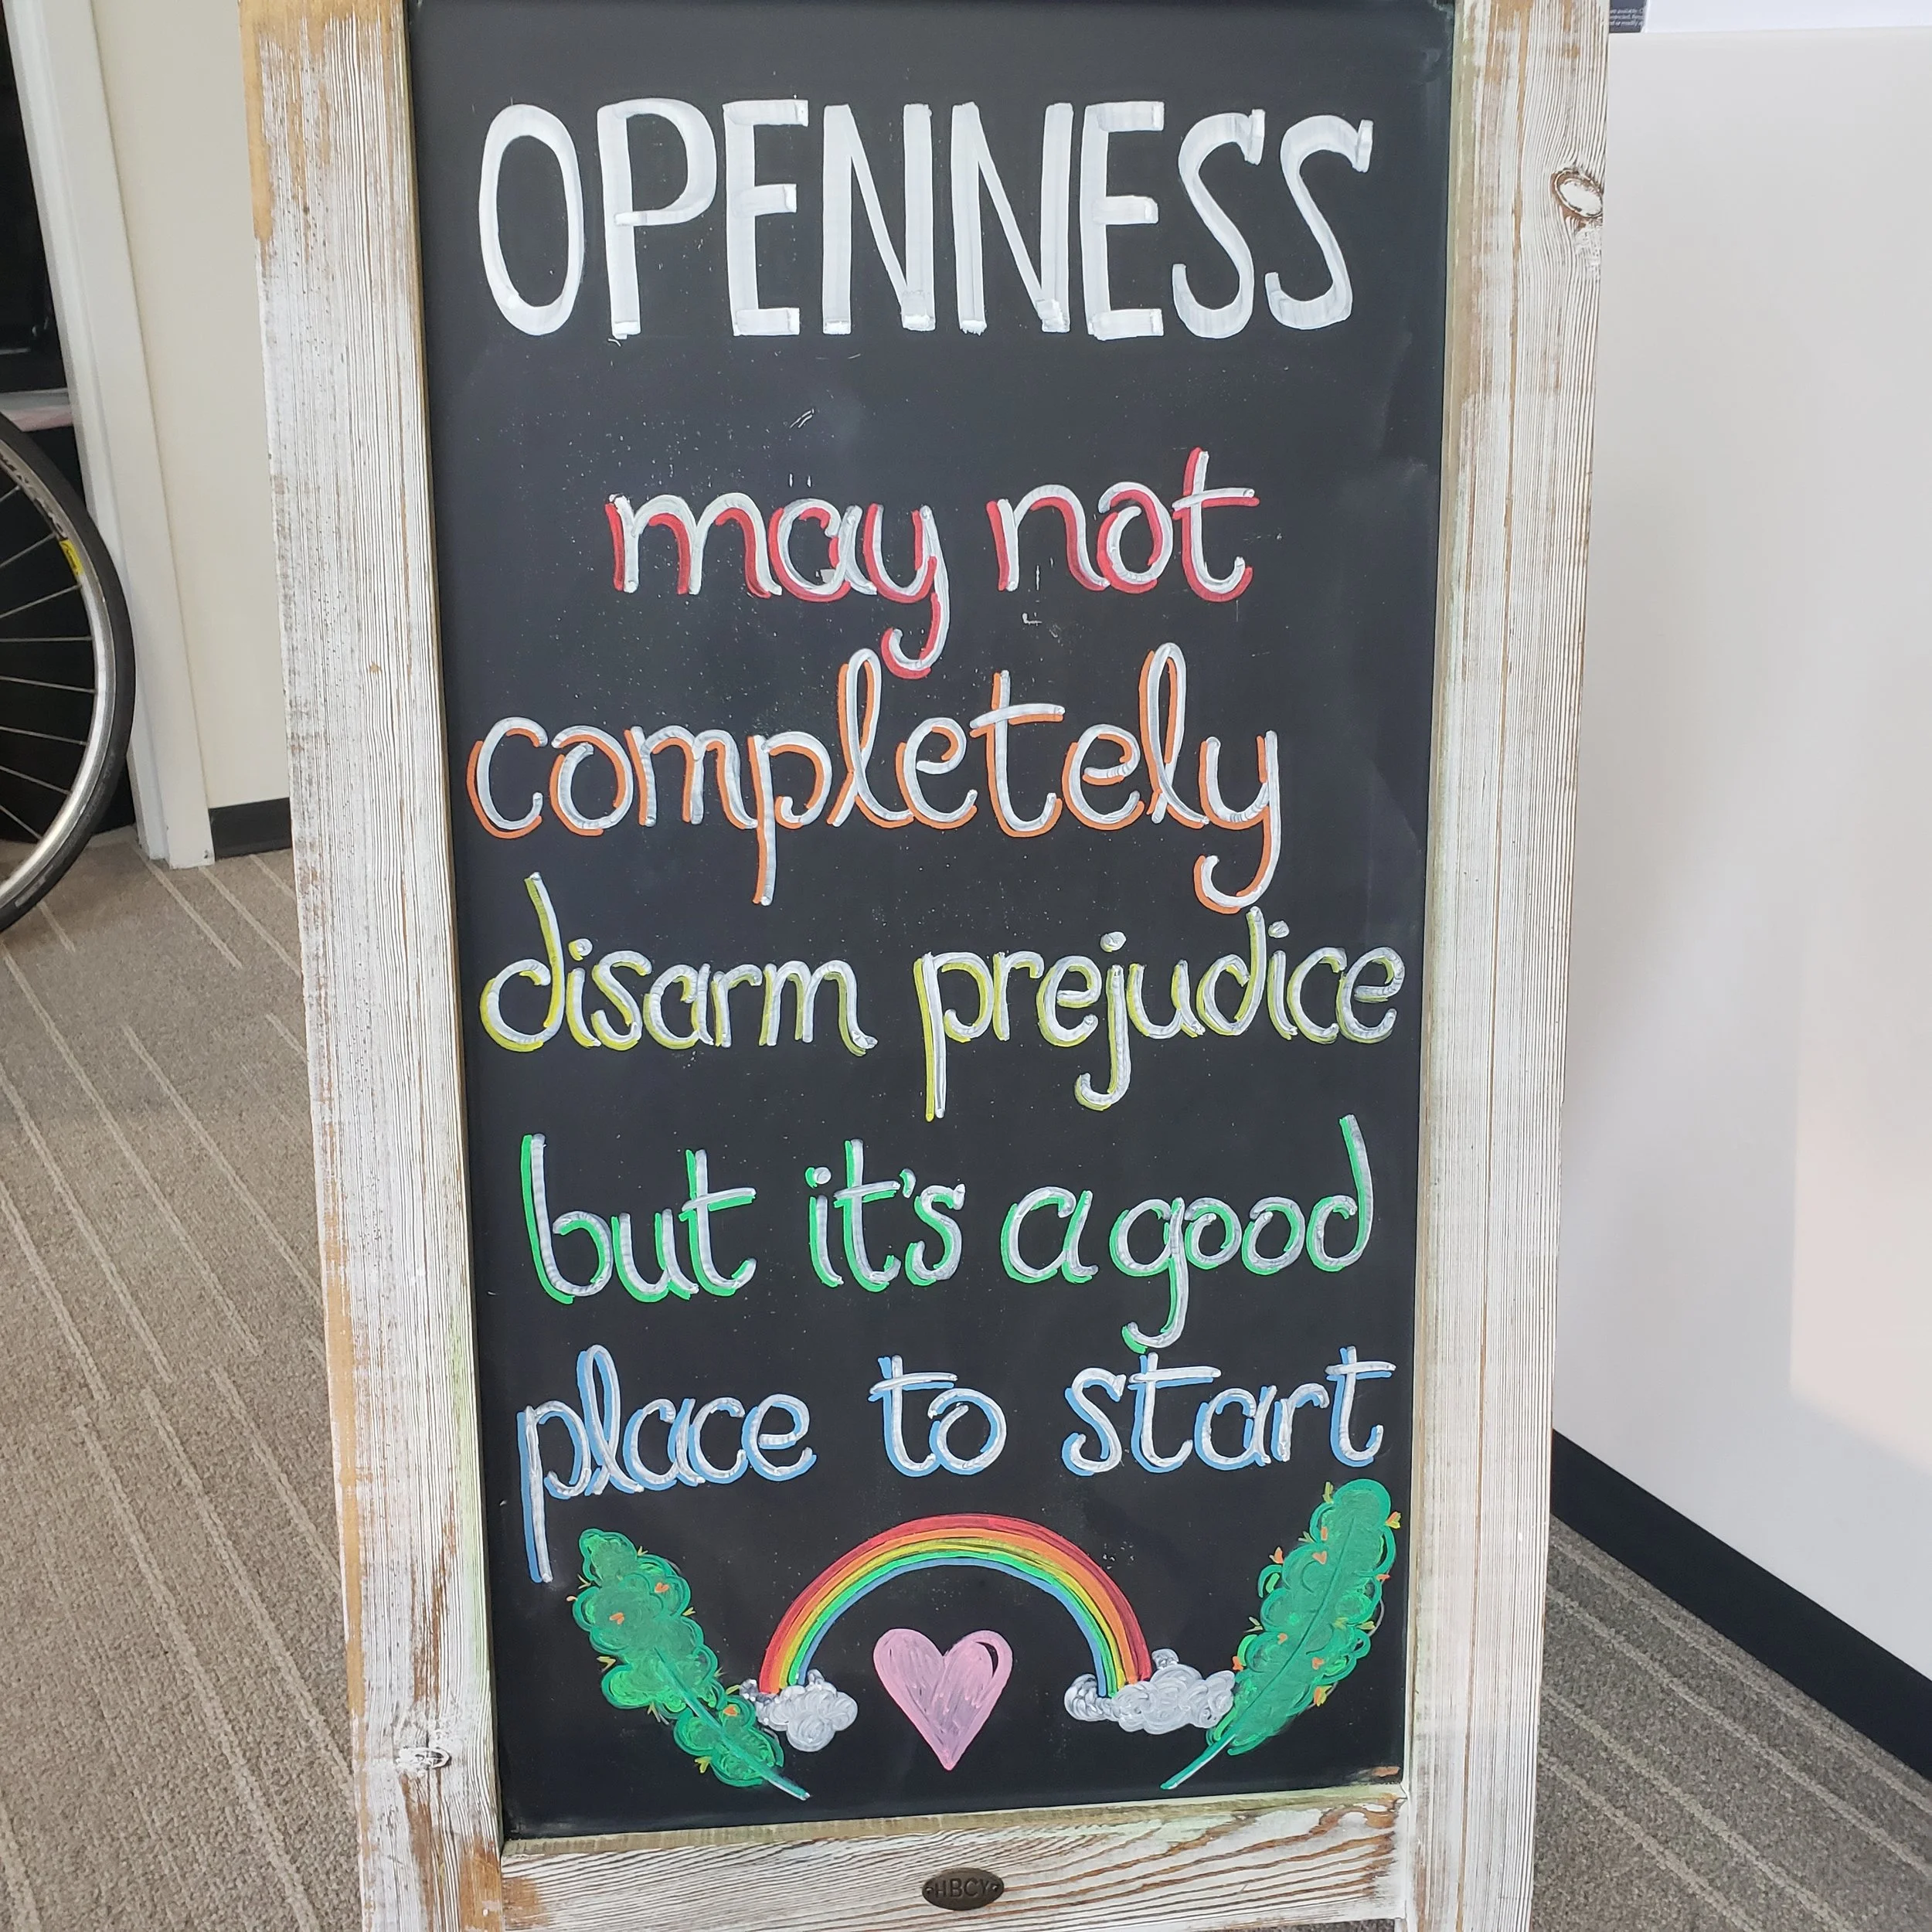 OPENNESS
may not
completely
disarm prejudice
but it's a good
place to start
HBCY